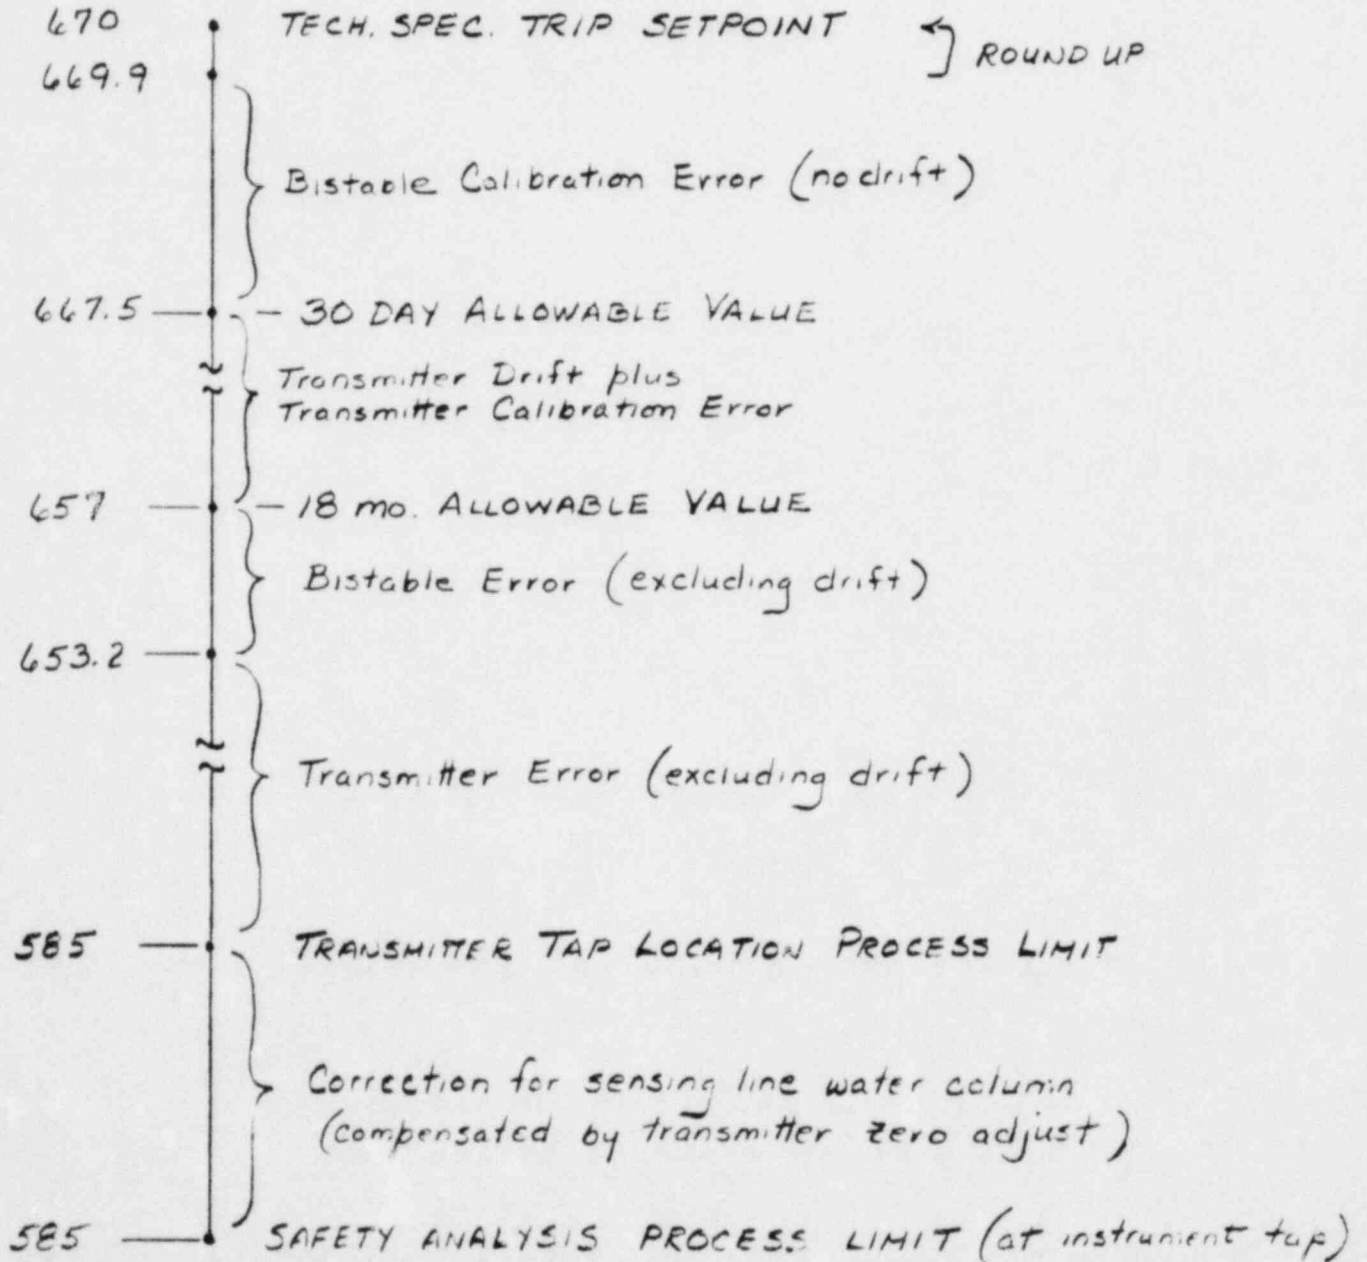 670 TECH. SPEC. TRIP SETPOINT
ROUND UP
669.9
Bistable Calibration Error (no drift)
667.5 30 DAY ALLOWABLE VALUE
Transmitter Drift plus
Transmitter Calibration Error
657 18 mo. ALLOWABLE VALUE
Bistable Error (excluding drift)
653.2
Transmitter Error (excluding drift)
585 TRANSMITTER TAP LOCATION PROCESS LIMIT
Correction for sensing line water column
(compensated by transmitter zero adjust)
585 SAFETY ANALYSIS PROCESS LIMIT (at instrument tap)